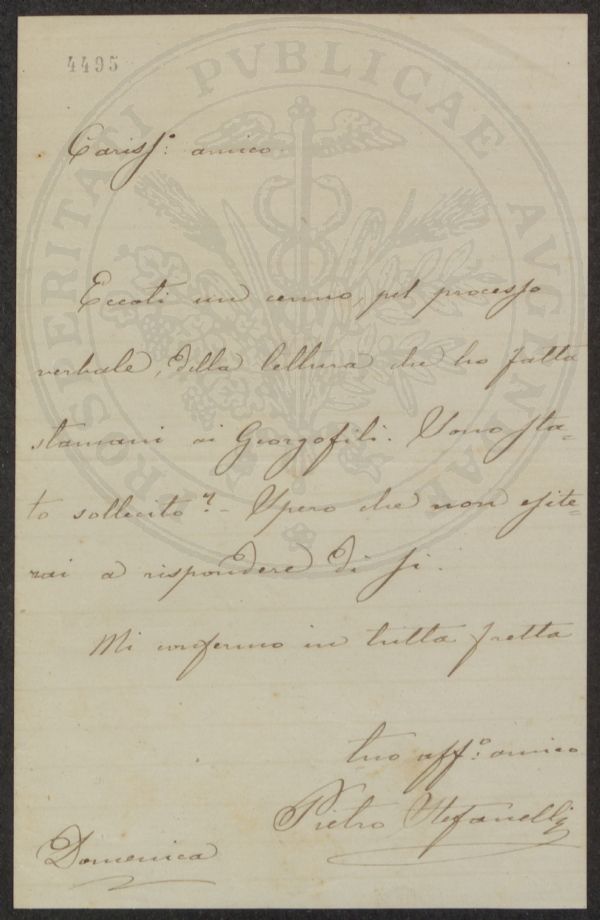 4495
PROSPERITATI PVBLICAE AVGENDAE
Cariss.º: amico.
Eccoti un cenno, pel processo
verbale, della lettura che ho fatta
stamani ai Georgofili. Sono sta=
to sollecito? - Spero che non esite=
rai a rispondere di sì.
Mi confermo in tutta fretta
tuo aff.º: amico
Pietro Stefanelli
Domenica